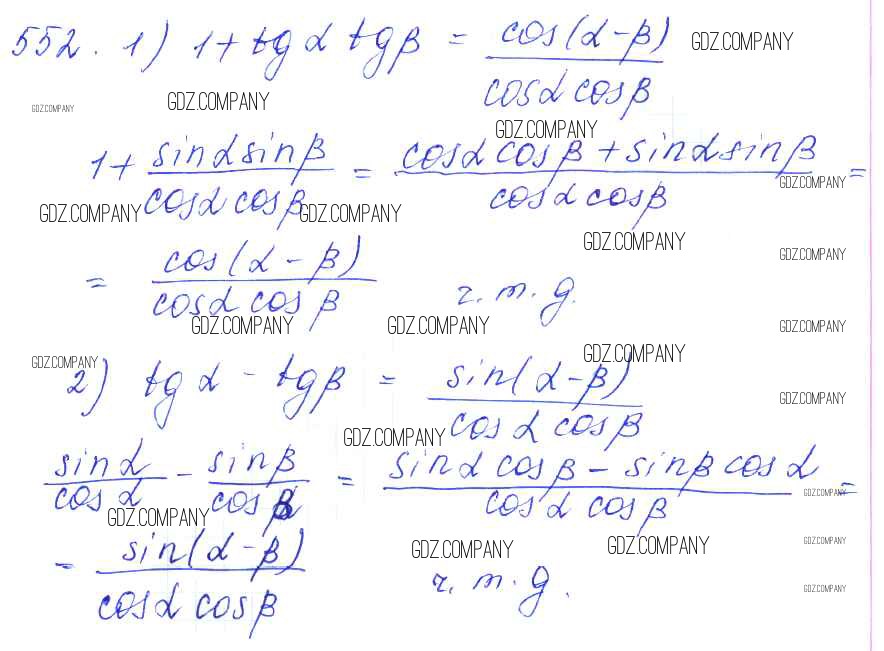 552. 1) 1 + tg α tg β = cos(α - β) / cos α cos β GDZ.COMPANY
GDZ.COMPANY GDZ.COMPANY
GDZ.COMPANY
1 + sin α sin β / cos α cos β = cos α cos β + sin α sin β / cos α cos β =
GDZ.COMPANY
GDZ.COMPANY GDZ.COMPANY
GDZ.COMPANY GDZ.COMPANY
= cos(α - β) / cos α cos β ч. т. д.
GDZ.COMPANY GDZ.COMPANY GDZ.COMPANY
GDZ.COMPANY GDZ.COMPANY
2) tg α - tg β = sin(α - β) / cos α cos β
GDZ.COMPANY
GDZ.COMPANY
sin α / cos α - sin β / cos β = sin α cos β - sin β cos α / cos α cos β =
GDZ.COMPANY
GDZ.COMPANY
= sin(α - β) / cos α cos β ч. т. д.
GDZ.COMPANY GDZ.COMPANY GDZ.COMPANY
GDZ.COMPANY